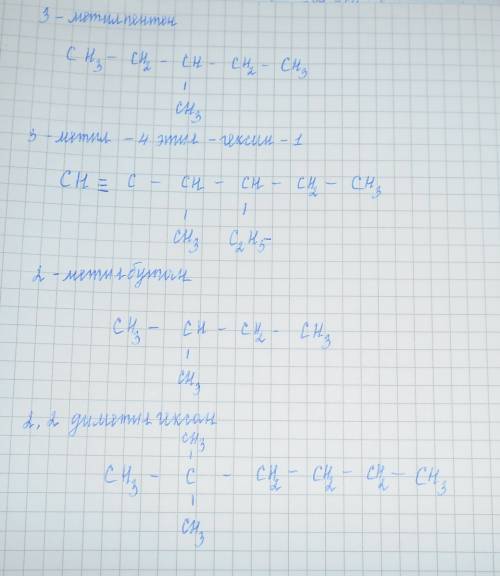 3 - метилпентан
CH₃ - CH₂ - CH - CH₂ - CH₃
CH₃
3 - метил - 4 этил - гексин - 1
CH ≡ C - CH - CH - CH₂ - CH₃
CH₃ C₂H₅
2 - метилбутан
CH₃ - CH - CH₂ - CH₃
CH₃
2, 2 диметилгексан
CH₃
CH₃ - C - CH₂ - CH₂ - CH₂ - CH₃
CH₃